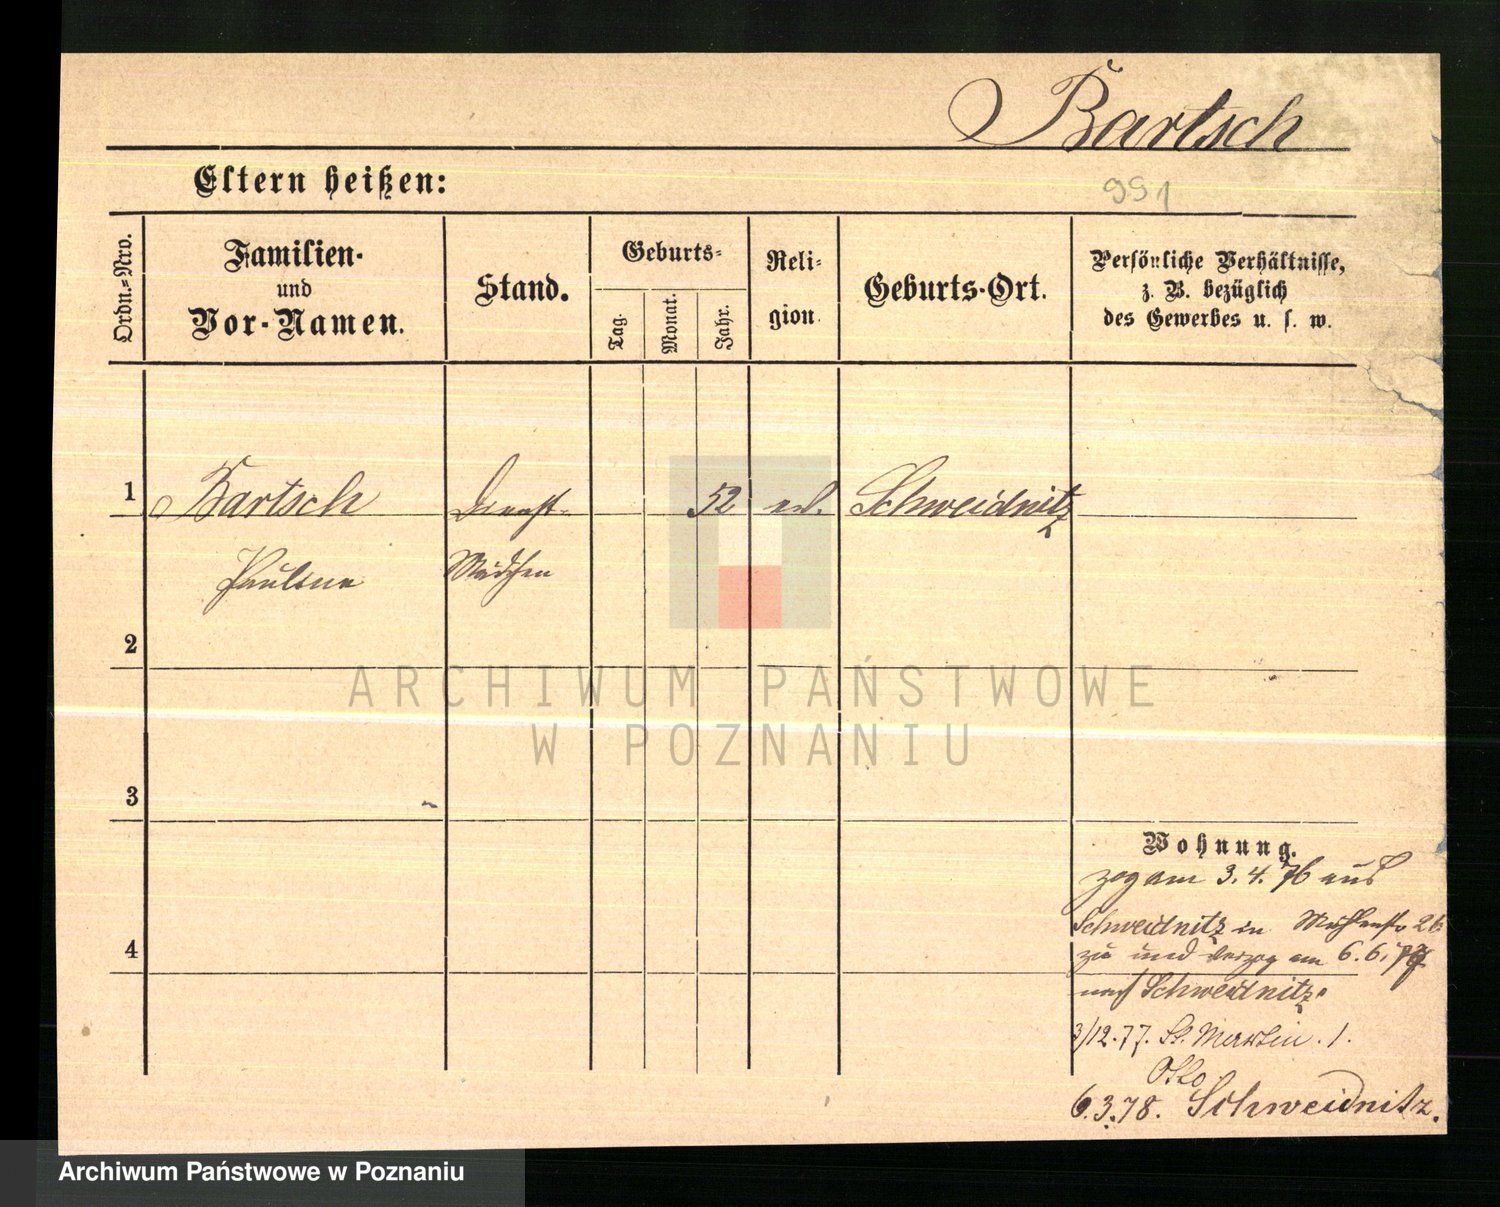 Bartsch
Eltern heißen:
991
Ordn.-Nro.
Familien-
und
Vor-Namen.
Stand.
Geburts-
Tag.
Monat.
Jahr.
Reli-
gion.
Geburts-Ort.
Persönliche Verhältnisse,
z. B. bezüglich
des Gewerbes u. s. w.
1 Bartsch Dienst- 52 ev. Schweidnitz
Pauline Mädchen
2
ARCHIWUM PAŃSTWOWE
W POZNANIU
3
Wohnung.
zog am 3.4.76 aus
Schweidnitz in Mühlenstr 26
4
zu und verzog am 6.6.
nach Schweidnitz.
3/12.77. St. Martin. 1.
Otto
6.3.78. Schweidnitz.
Archiwum Państwowe w Poznaniu